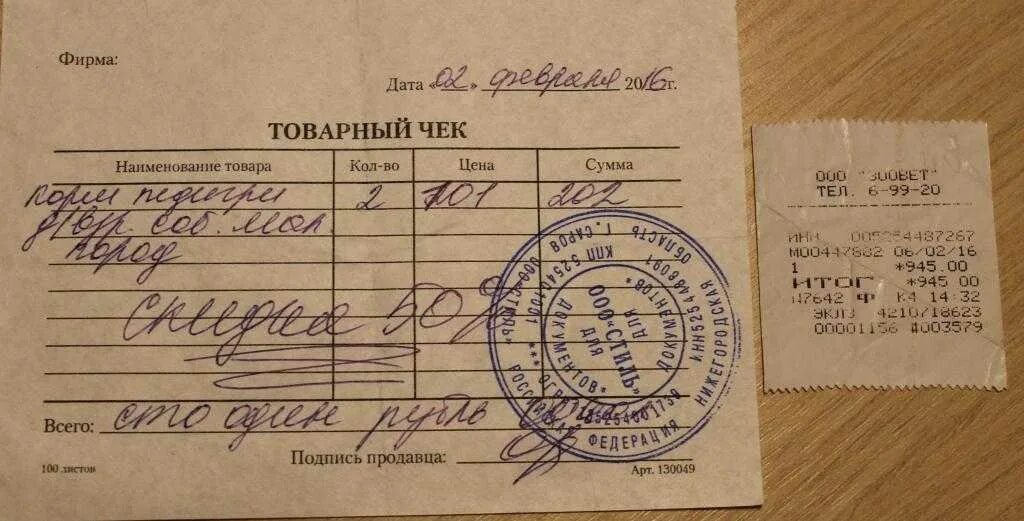 Фирма:
Дата «02» февраля 2016г.
ТОВАРНЫЙ ЧЕК
Наименование товара Кол-во Цена Сумма
корм педигри 2 101 202
д/взр. соб. мал.
пород
скидка 50%
Всего: сто один рубль
Подпись продавца:
100 листов
Арт. 130049
РОССИЙСКАЯ ФЕДЕРАЦИЯ НИЖЕГОРОДСКАЯ ОБЛАСТЬ Г. САРОВ
ООО «СТИЛЬ»
ДЛЯ
ДОКУМЕНТОВ
ООО "ЗООВЕТ"
ТЕЛ. 6-99-20
ИНН 005254487267
M00447882 06/02/16
1 *945.00
ИТОГ *945.00
И7642 Ф К4 14:32
ЭКЛЗ 4210718623
00001156 #003579